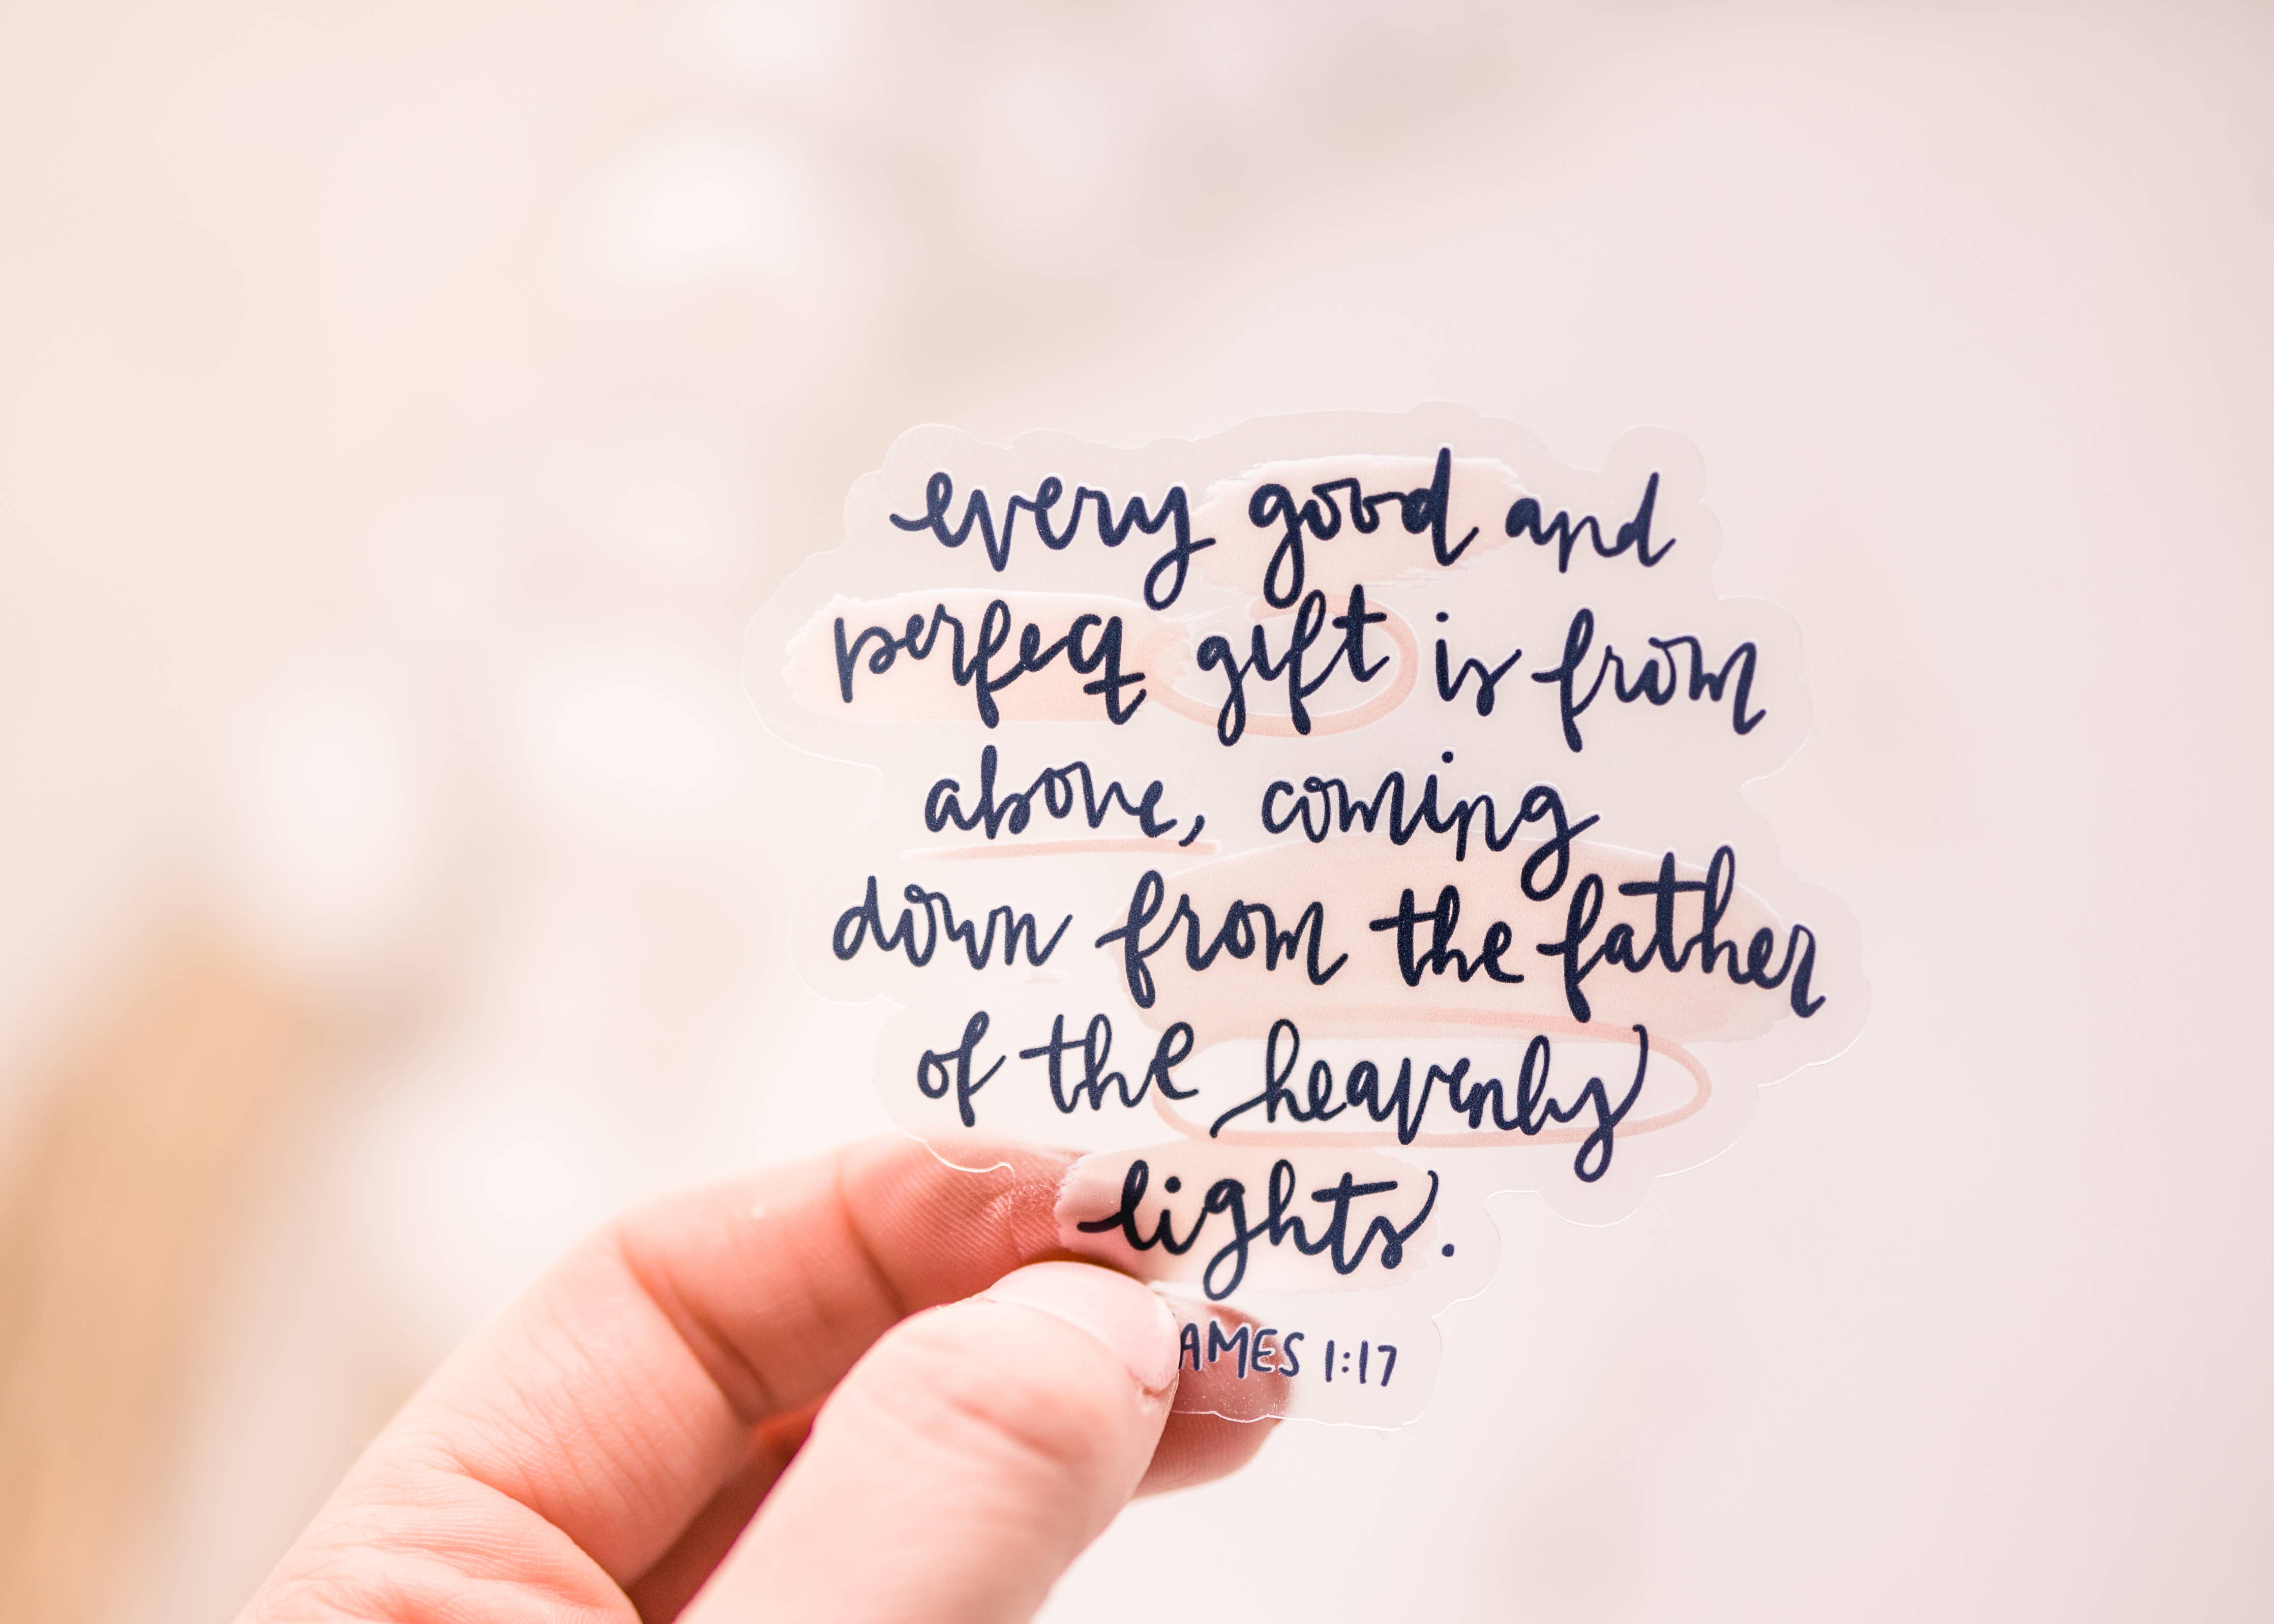 every good and
perfect gift is from
above, coming
down from the father
of the heavenly
lights.
AMES 1:17